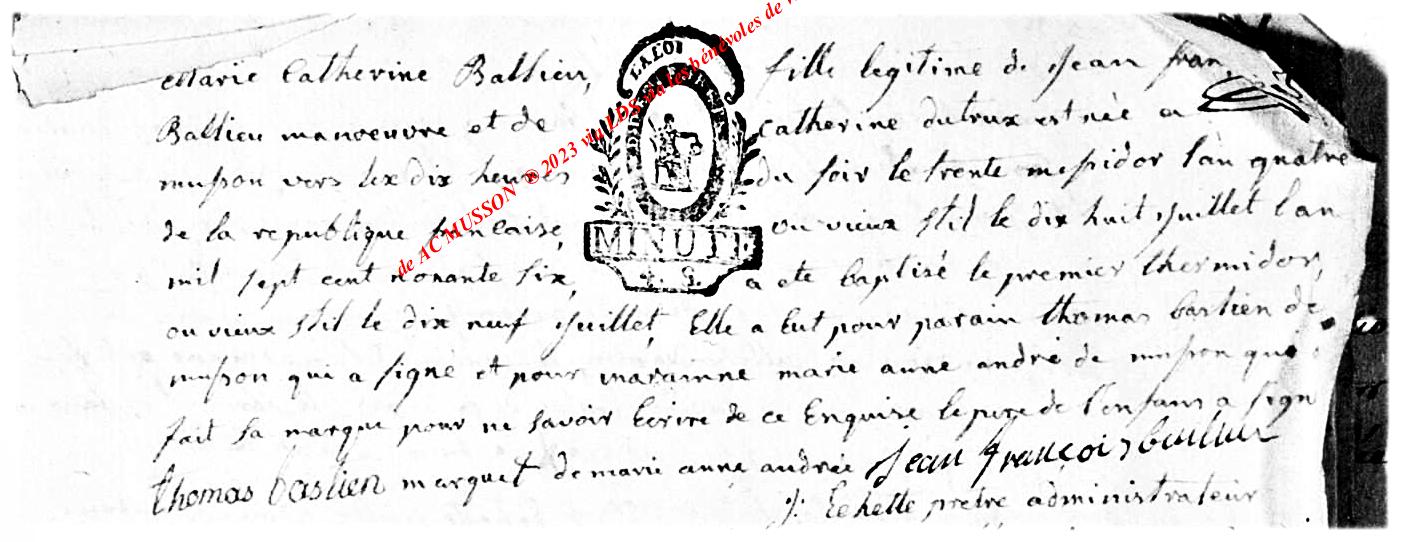 Marie Catherine Ballieu, fille legitime de Jean fran
Ballieu manoeuvre et de Catherine dutrux est née a
musson vers les dix heures du soir le trente messidor l'an quatre
de la republique francaise, ou vieux stil le dix huit juillet l'an
mil sept cent nonante six, a ete baptisé le premier thermidor,
ou vieux stil le dix neuf juillet, Elle a Eut pour parain thomas bastien de
musson qui a signe et pour maramne marie anne andré de musson qui
fait sa marque pour ne savoir Ecrire de ce Enquise le pere de l'enfant a sign
thomas bastien marque + de marie anne andrée Jean françois ballieu
j: Echette pretre administrateur
LA LOI
MINUTE
4 S.
de AC MUSSON ® 2023 via LDS via les bénévoles de